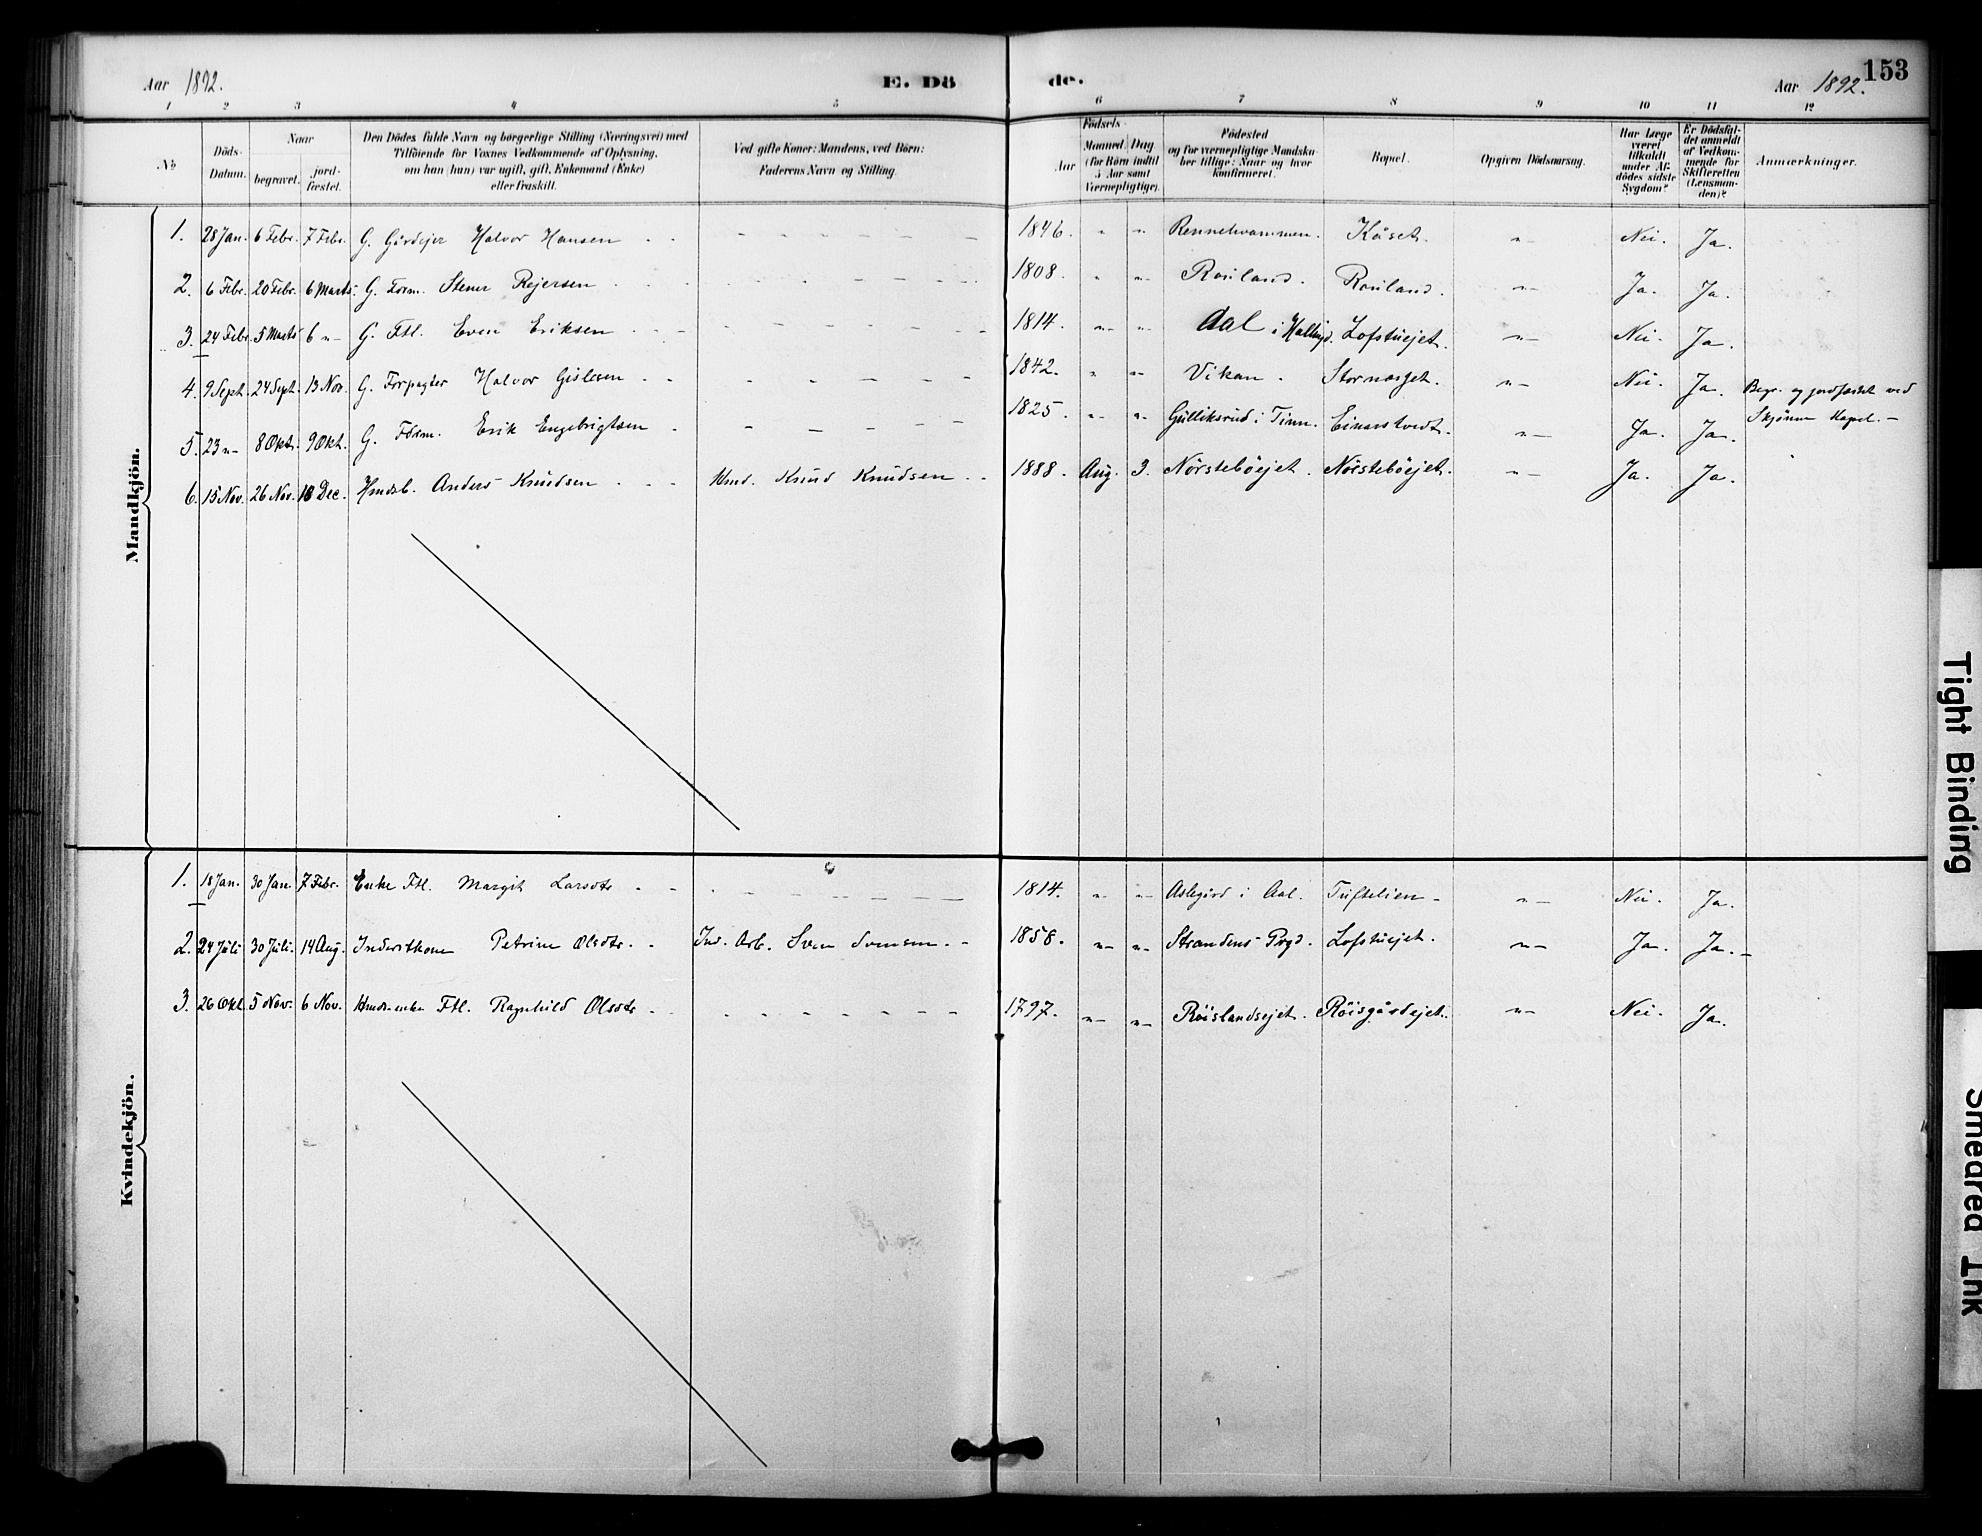 Aar 1892. E. Döde. Aar 1892. 153
1 2 3 4 5 6 7 8 9 10 11 12
No
Döds-Datum.
Naar
begravet. jord-fæstet.
Den Dödes fulde Navn og borgerlige Stilling (Næringsvei) med
Tilföiende for Voxnes Vedkommende af Oplysning,
om han (hun) var ugift, gift, Enkemand (Enke)
eller fraskilt.
Ved gifte Koner: Mandens, ved Börn:
Faderens Navn og Stilling.
Födsels-
Aar
Maaned. Dag
(for Börn indtil
5 Aar samt
Værnepligtige).
Födested
og for værnepligtige Mandska-
ber tillige: Naar og hvor
konfirmeret.
Bopæl.
Opgiven Dödsaarsag.
Har Læge
været
tilkaldt
under Af-
dödes sidste
Sygdom?
Er Dödsfal-
det anmeldt
af Vedkom-
mende for
Skifteretten
(Lensman-
den)?
Anmærkninger.
Mandkjön.
1. 28 Jan. 6 Febr. 7 Febr. G. Gårdejer Halvor Hansen - - 1846. " "- Rennehvammen. Kåset. "- Nei. Ja.
2. 6 Febr. 20 Febr. 6 Marts. G. Form. Stener Rejersen 1808. " "- Rauland. Rauland. "- Ja. Ja.
3. 24 Febr. 5 Marts 6 "- G. Ftl. Even Eriksen 1814. "- "- Aal i Hallingd. Lofstuejet. "- Nei. Ja.
4. 9 Sept. 24 Sept. 13 Nov. G. Forpagter Halvor Gislesen 1842. " "- Vikan. Stornæsjet. "- Nei. Ja. Begr. og jordfæstet ved
Skjönne Kapel. -
5. 23 "- 8 Okt. 9 Okt. G. Form. Erik Engebrigtsen 1825. "- "- Gulliksrud i Tinn. Einarstvedt. "- Ja. Ja.
6. 15 Nov. 26 Nov. 18 Dec. Hmdsb. Anders Knudsen Hmd. Knud Knudsen 1888. Aug. 3. Nörsteböejet. Nörsteböejet. "- Ja. Ja.
Kvindekjön.
1. 18 Jan. 30 Jan. 7 Febr. Enke Ftl. Margit Larsdtr 1814. "- "- Aslegård i Aal. Tuftelien - "- Nei. Ja.
2. 24 Juli 30 Juli. 14 Aug. Inderstkone Petrine Olsdtr. Ind. Arb. Sven Svensen. 1858. "- "- Strandens Prgd. Lofstuejet. "- Ja. Ja. -
3. 26 Okt. 5 Nov. 6 Nov. Hmds.enke Ftl. Ragnhild Olsdtr 1797. "- "- Röislandsejet. Röisgårdejet. "- Nei. Ja.
Tight Binding
Smeared Ink